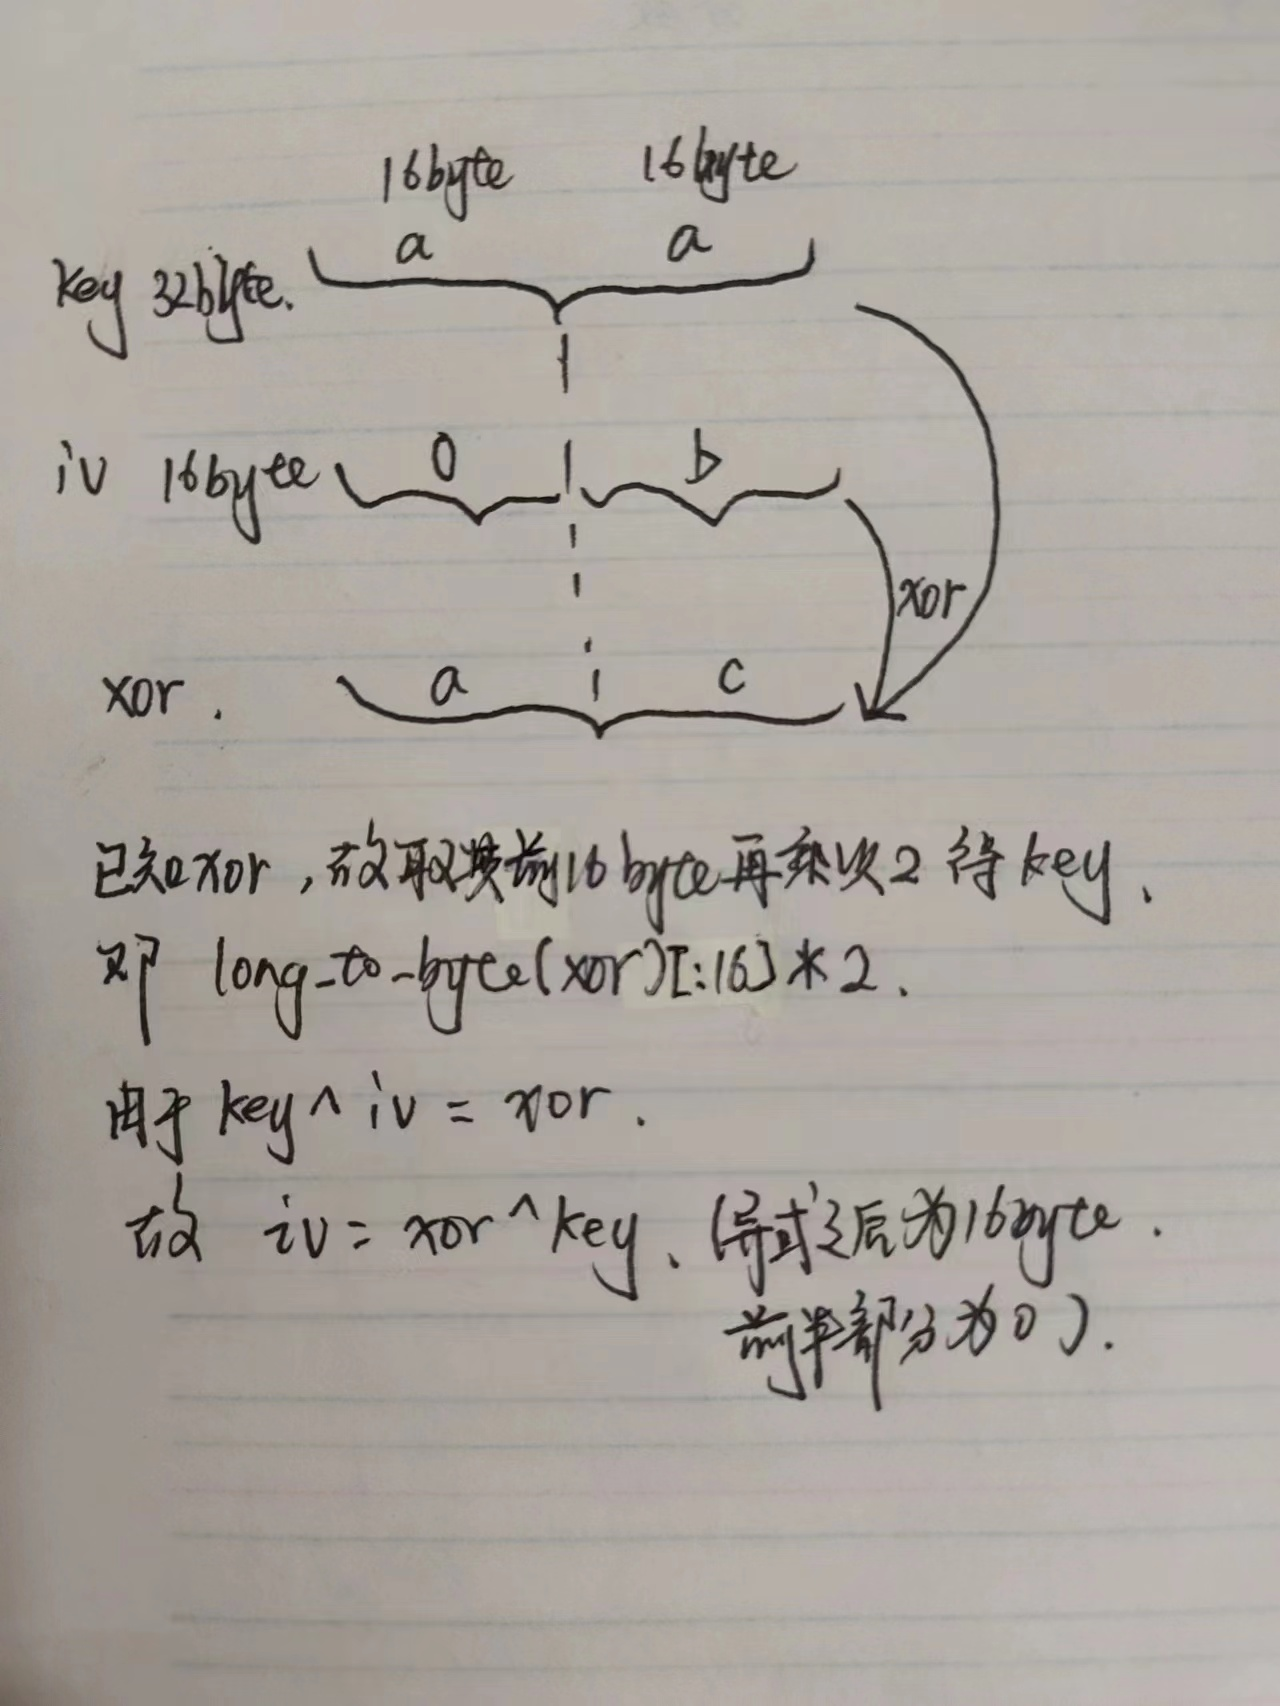 16byte 16byte
a a
key 32byte.
iv 16byte 0 b
xor
xor. a c
已知xor,故取其前16byte再乘以2得key.
即 long-to-byte(xor)[:16]*2.
由于key^iv=xor.
故 iv=xor^key. (异或之后为16byte.
前半部分为0).